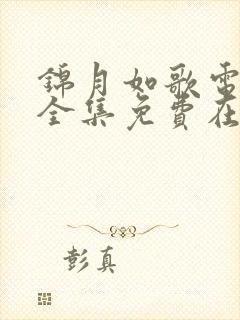 錦月如歌電
全集免費在
彭真